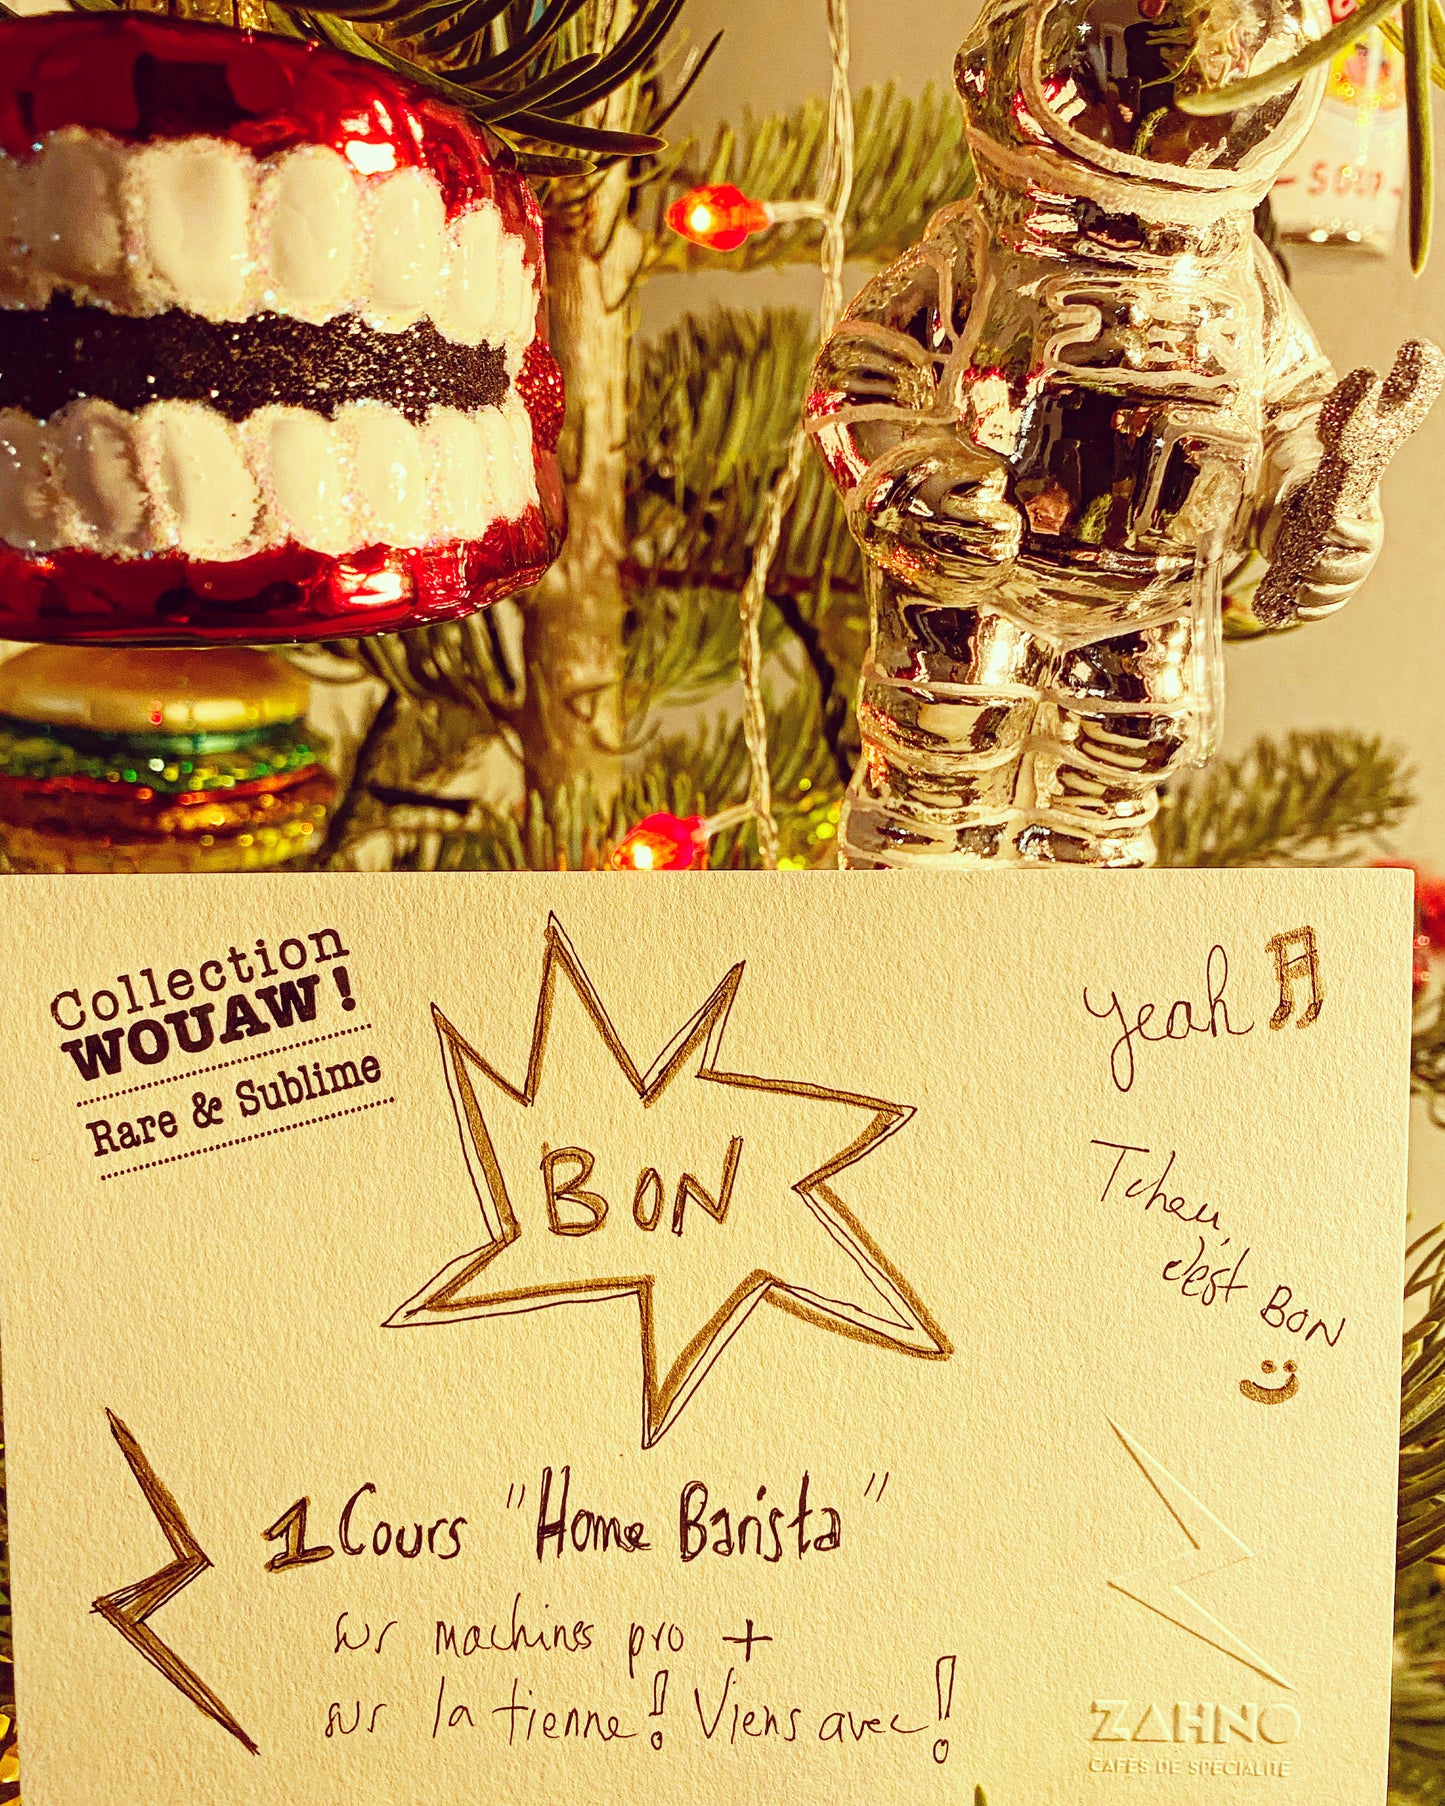 - SOUP -
Collection
WOUAW !
Rare & Sublime
BON
yeah
Tcheu,
c'est BON
1 Cours "Home Barista"
sur machines pro +
sur la tienne ! Viens avec !
ZAHNO
CAFÉS DE SPÉCIALITÉ